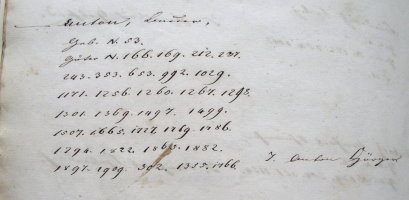 Anton, Bauer,
Geb. N. 53.
Güter N. 166. 169. 212. 237.
243. 353. 653. 992. 1029.
1171. 1256. 1260. 1267. 1293.
1301. 1369. 1497. 1499.
1507. 1665. 1727. 1769. 1786.
1794. 1822. 1866. 1882.
1897. 1909. 302. 1355. 1766.
J. Anton